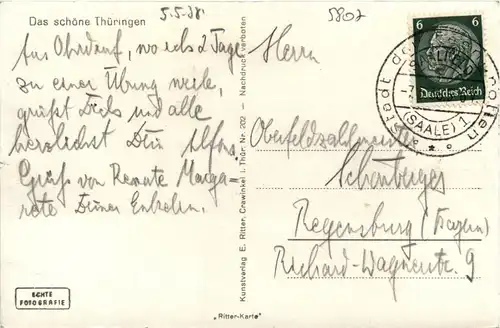 Das schöne Thüringen
5.5.38
5807
Aus Ohrdruf, wo ich 2 Tage
zu einer Übung weile,
grüßt Dich und alle
herzlichst Dein Alfons
Gruß von Renate Marga-
rete Deiner Enkelin.
Herrn
Oberfeldzahlmeister
Schönberger
Regensburg (Bayern)
Richard-Wagnerstr. 9
Kunstverlag E. Ritter, Crawinkel i. Thür. Nr. 202 – Nachdruck verboten
6 6
Deutsches Reich
Stadt der
(SAALE) 1
ECHTE
FOTOGRAFIE
„Ritter-Karte"